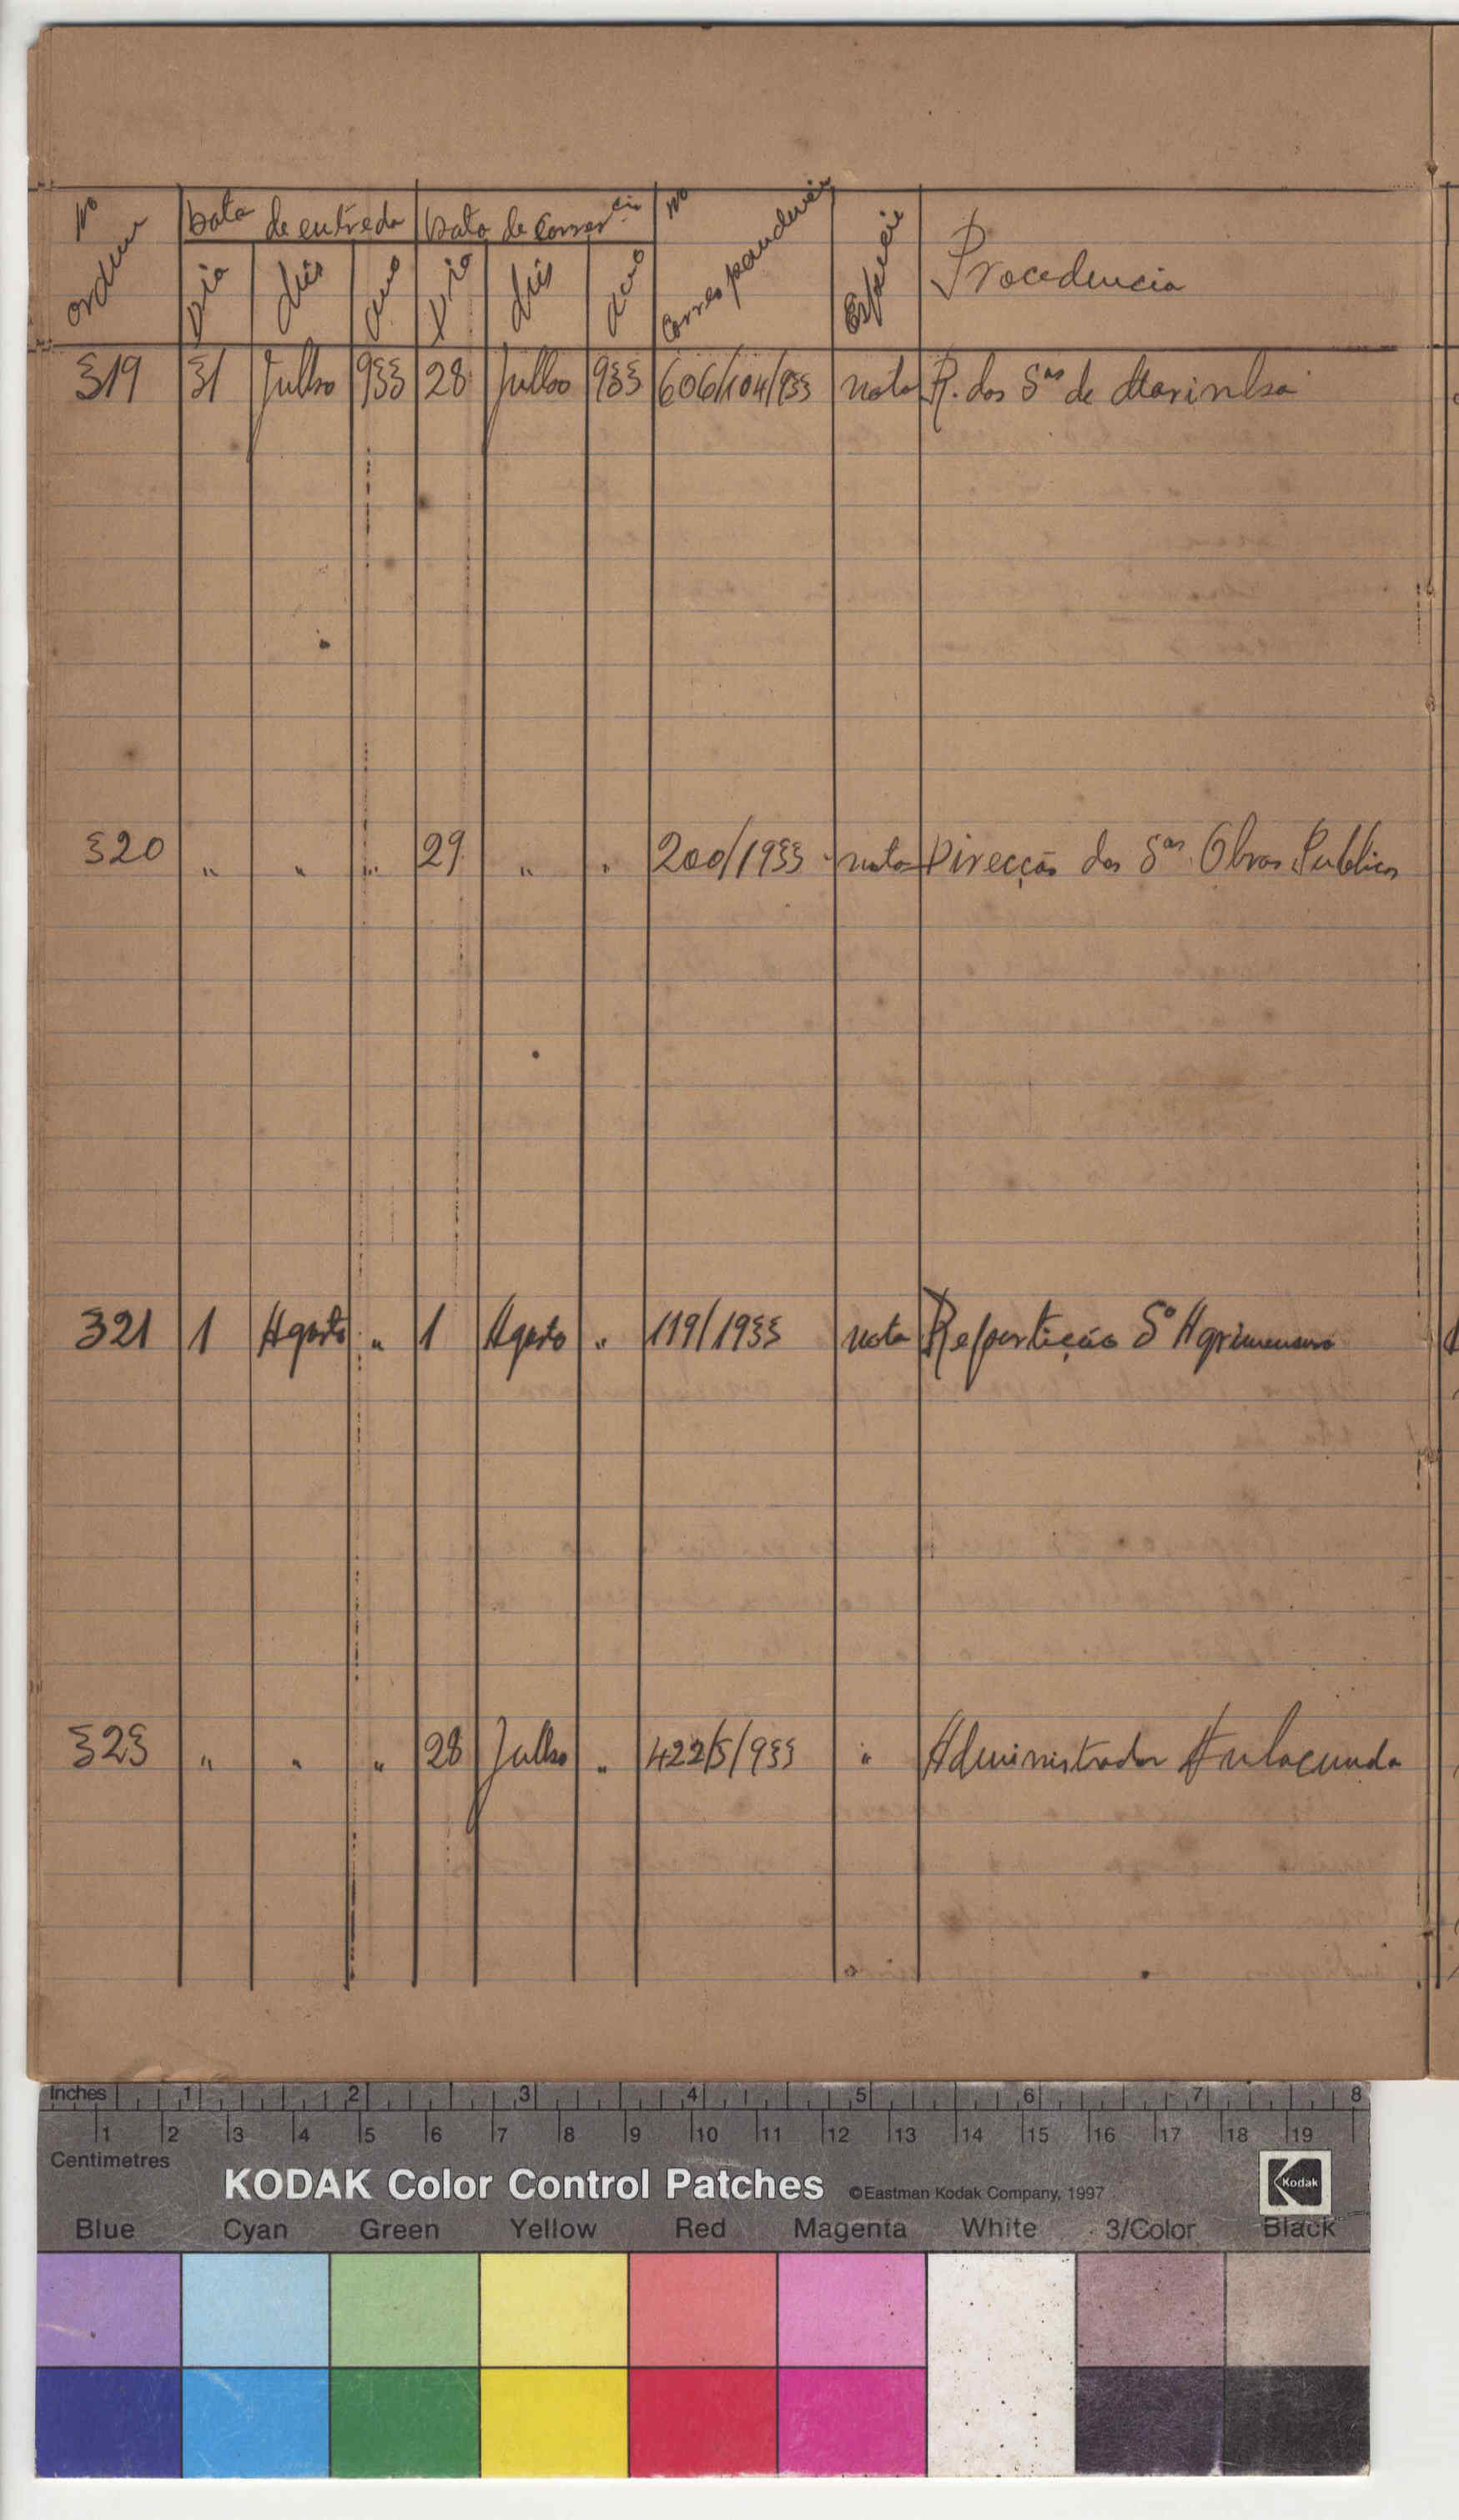 Nº ordem Data de entrada Data de corres.cia Nº correspondencia Especie Procedencia
Dia Mês ano Dia Mês ano
319 31 Julho 933 28 Julho 933 606/104/933 nota R. dos Sos de Marinha
320 " " " 29 " " 200/1933 nota Direcção dos Sos Obras Publicas
321 1 Agosto " 1 Agosto " 119/1933 nota Repartição So Agrimensura
323 " " " 28 Julho " 422/5/933 " Administrador Fulacunda
Inches 1 2 3 4 5 6 7 8
1 2 3 4 5 6 7 8 9 10 11 12 13 14 15 16 17 18 19
Centimetres
KODAK Color Control Patches ©Eastman Kodak Company, 1997 Kodak
Blue Cyan Green Yellow Red Magenta White 3/Color Black